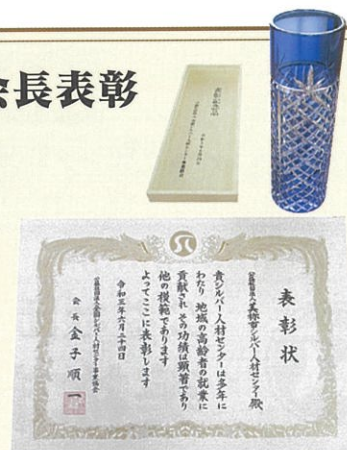 会長表彰
表彰記念品
表彰状
公益社団法人美祢市シルバー人材センター殿
貴シルバー人材センターは多年に
わたり 地域の高齢者の就業に
貢献され その功績は顕著であり
他の模範であります
よってここに表彰します
令和三年六月二十四日
公益社団法人全国シルバー人材センター事業協会
会長 金子順一